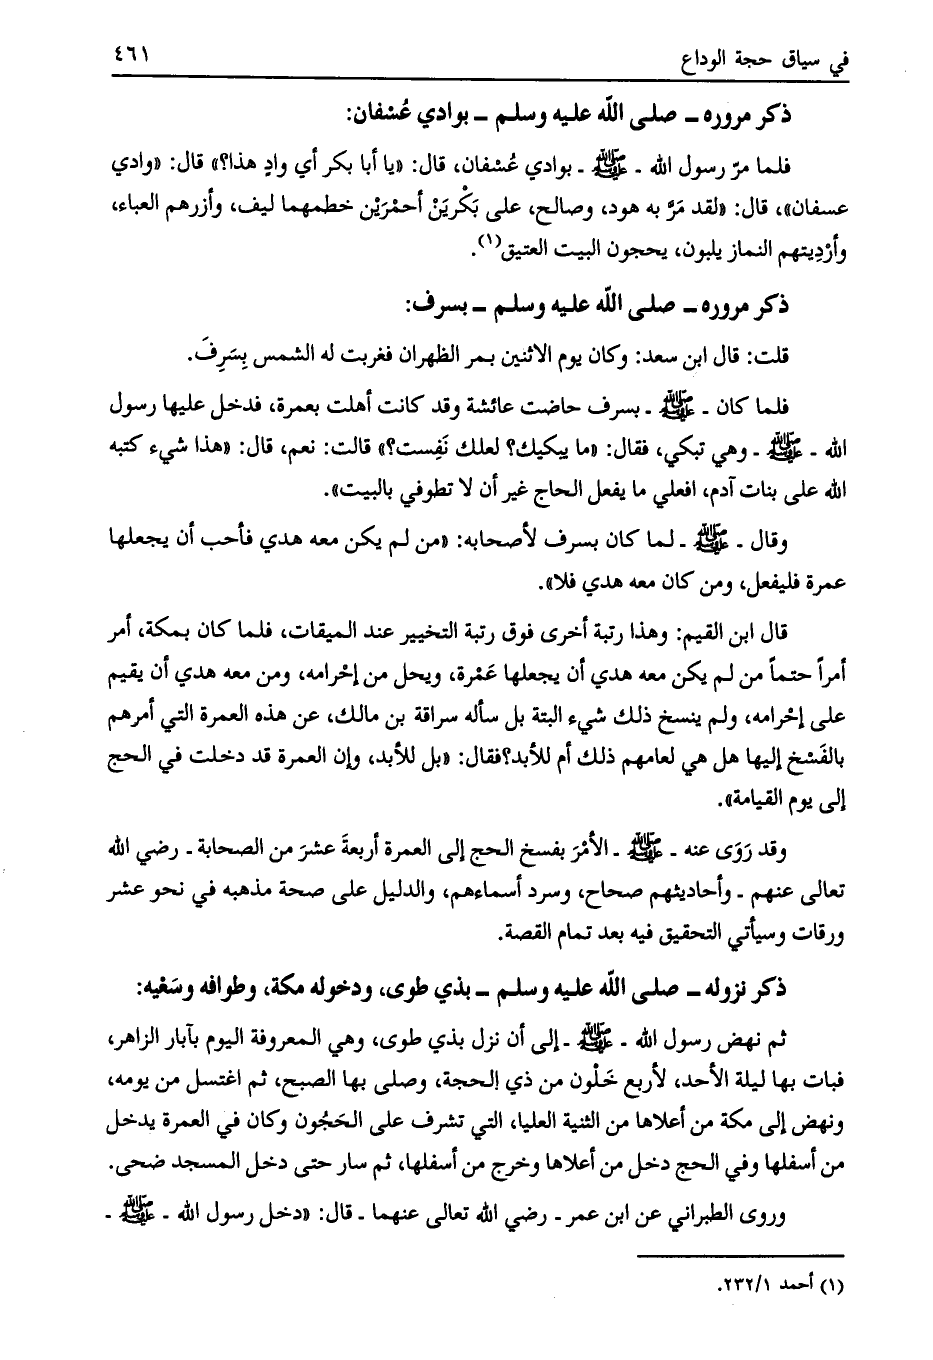 في سياق حجة الوداع
٤٦١
ذكر مروره ـ صلى الله عليه وسلم ـ بوادي عُسْفان:
فلما مرّ رسول الله ـ ﷺ ـ بوادي عُسْفان، قال: «يا أبا بكر أي وادٍ هذا؟» قال: «وادي
عسفان»، قال: «لقد مَرَّ به هود، وصالح، على بَكْريَنْ أحمْرَيْن خطمهما ليف، وأزرهم العباء،
وأرْدِيتهم النماز يلبون، يحجون البيت العتيق(١).
ذكر مروره ـ صلى الله عليه وسلم ـ بسرف:
قلت: قال ابن سعد: وكان يوم الاثنين بمر الظهران فغربت له الشمس بِسَرِفَ.
فلما كان ـ ﷺ ـ بسرف حاضت عائشة وقد كانت أهلت بعمرة، فدخل عليها رسول
الله ـ ﷺ ـ وهي تبكي، فقال: «ما يبكيك؟ لعلك نَفِست؟» قالت: نعم، قال: «هذا شيء كتبه
الله على بنات آدم، افعلي ما يفعل الحاج غير أن لا تطوفي بالبيت».
وقال ـ ﷺ ـ لما كان بسرف لأصحابه: «من لم يكن معه هدي فأحب أن يجعلها
عمرة فليفعل، ومن كان معه هدي فلا».
قال ابن القيم: وهذا رتبة أخرى فوق رتبة التخيير عند الميقات، فلما كان بمكة، أمر
أمراً حتماً من لم يكن معه هدي أن يجعلها عَمْرة، ويحل من إحْرامه، ومن معه هدي أن يقيم
على إحْرامه، ولم ينسخ ذلك شيء البتة بل سأله سراقة بن مالك، عن هذه العمرة التي أمرهم
بالفَسْخ إليها هل هي لعامهم ذلك أم للأبد؟فقال: «بل للأبد، وإن العمرة قد دخلت في الحج
إلى يوم القيامة».
وقد رَوَى عنه ـ ﷺ ـ الأمْرَ بفسخ الحج إلى العمرة أربعةَ عشرَ من الصحابة ـ رضي الله
تعالى عنهم ـ وأحاديثهم صحاح، وسرد أسماءهم، والدليل على صحة مذهبه في نحو عشر
ورقات وسيأتي التحقيق فيه بعد تمام القصة.
ذكر نزوله ـ صلى الله عليه وسلم ـ بذي طوى، ودخوله مكة، وطوافه وسَعْيه:
ثم نهض رسول الله ـ ﷺ ـ إلى أن نزل بذي طوى، وهي المعروفة اليوم بآبار الزاهر،
فبات بها ليلة الأحد، لأربع خَلْون من ذي الحجة، وصلى بها الصبح، ثم اغتسل من يومه،
ونهض إلى مكة من أعلاها من الثنية العليا، التي تشرف على الحَجُون وكان في العمرة يدخل
من أسفلها وفي الحج دخل من أعلاها وخرج من أسفلها، ثم سار حتى دخل المسجد ضحى.
وروى الطبراني عن ابن عمر ـ رضي الله تعالى عنهما ـ قال: «دخل رسول الله ـ ﷺ ـ
(١) أحمد ٢٣٢/١.